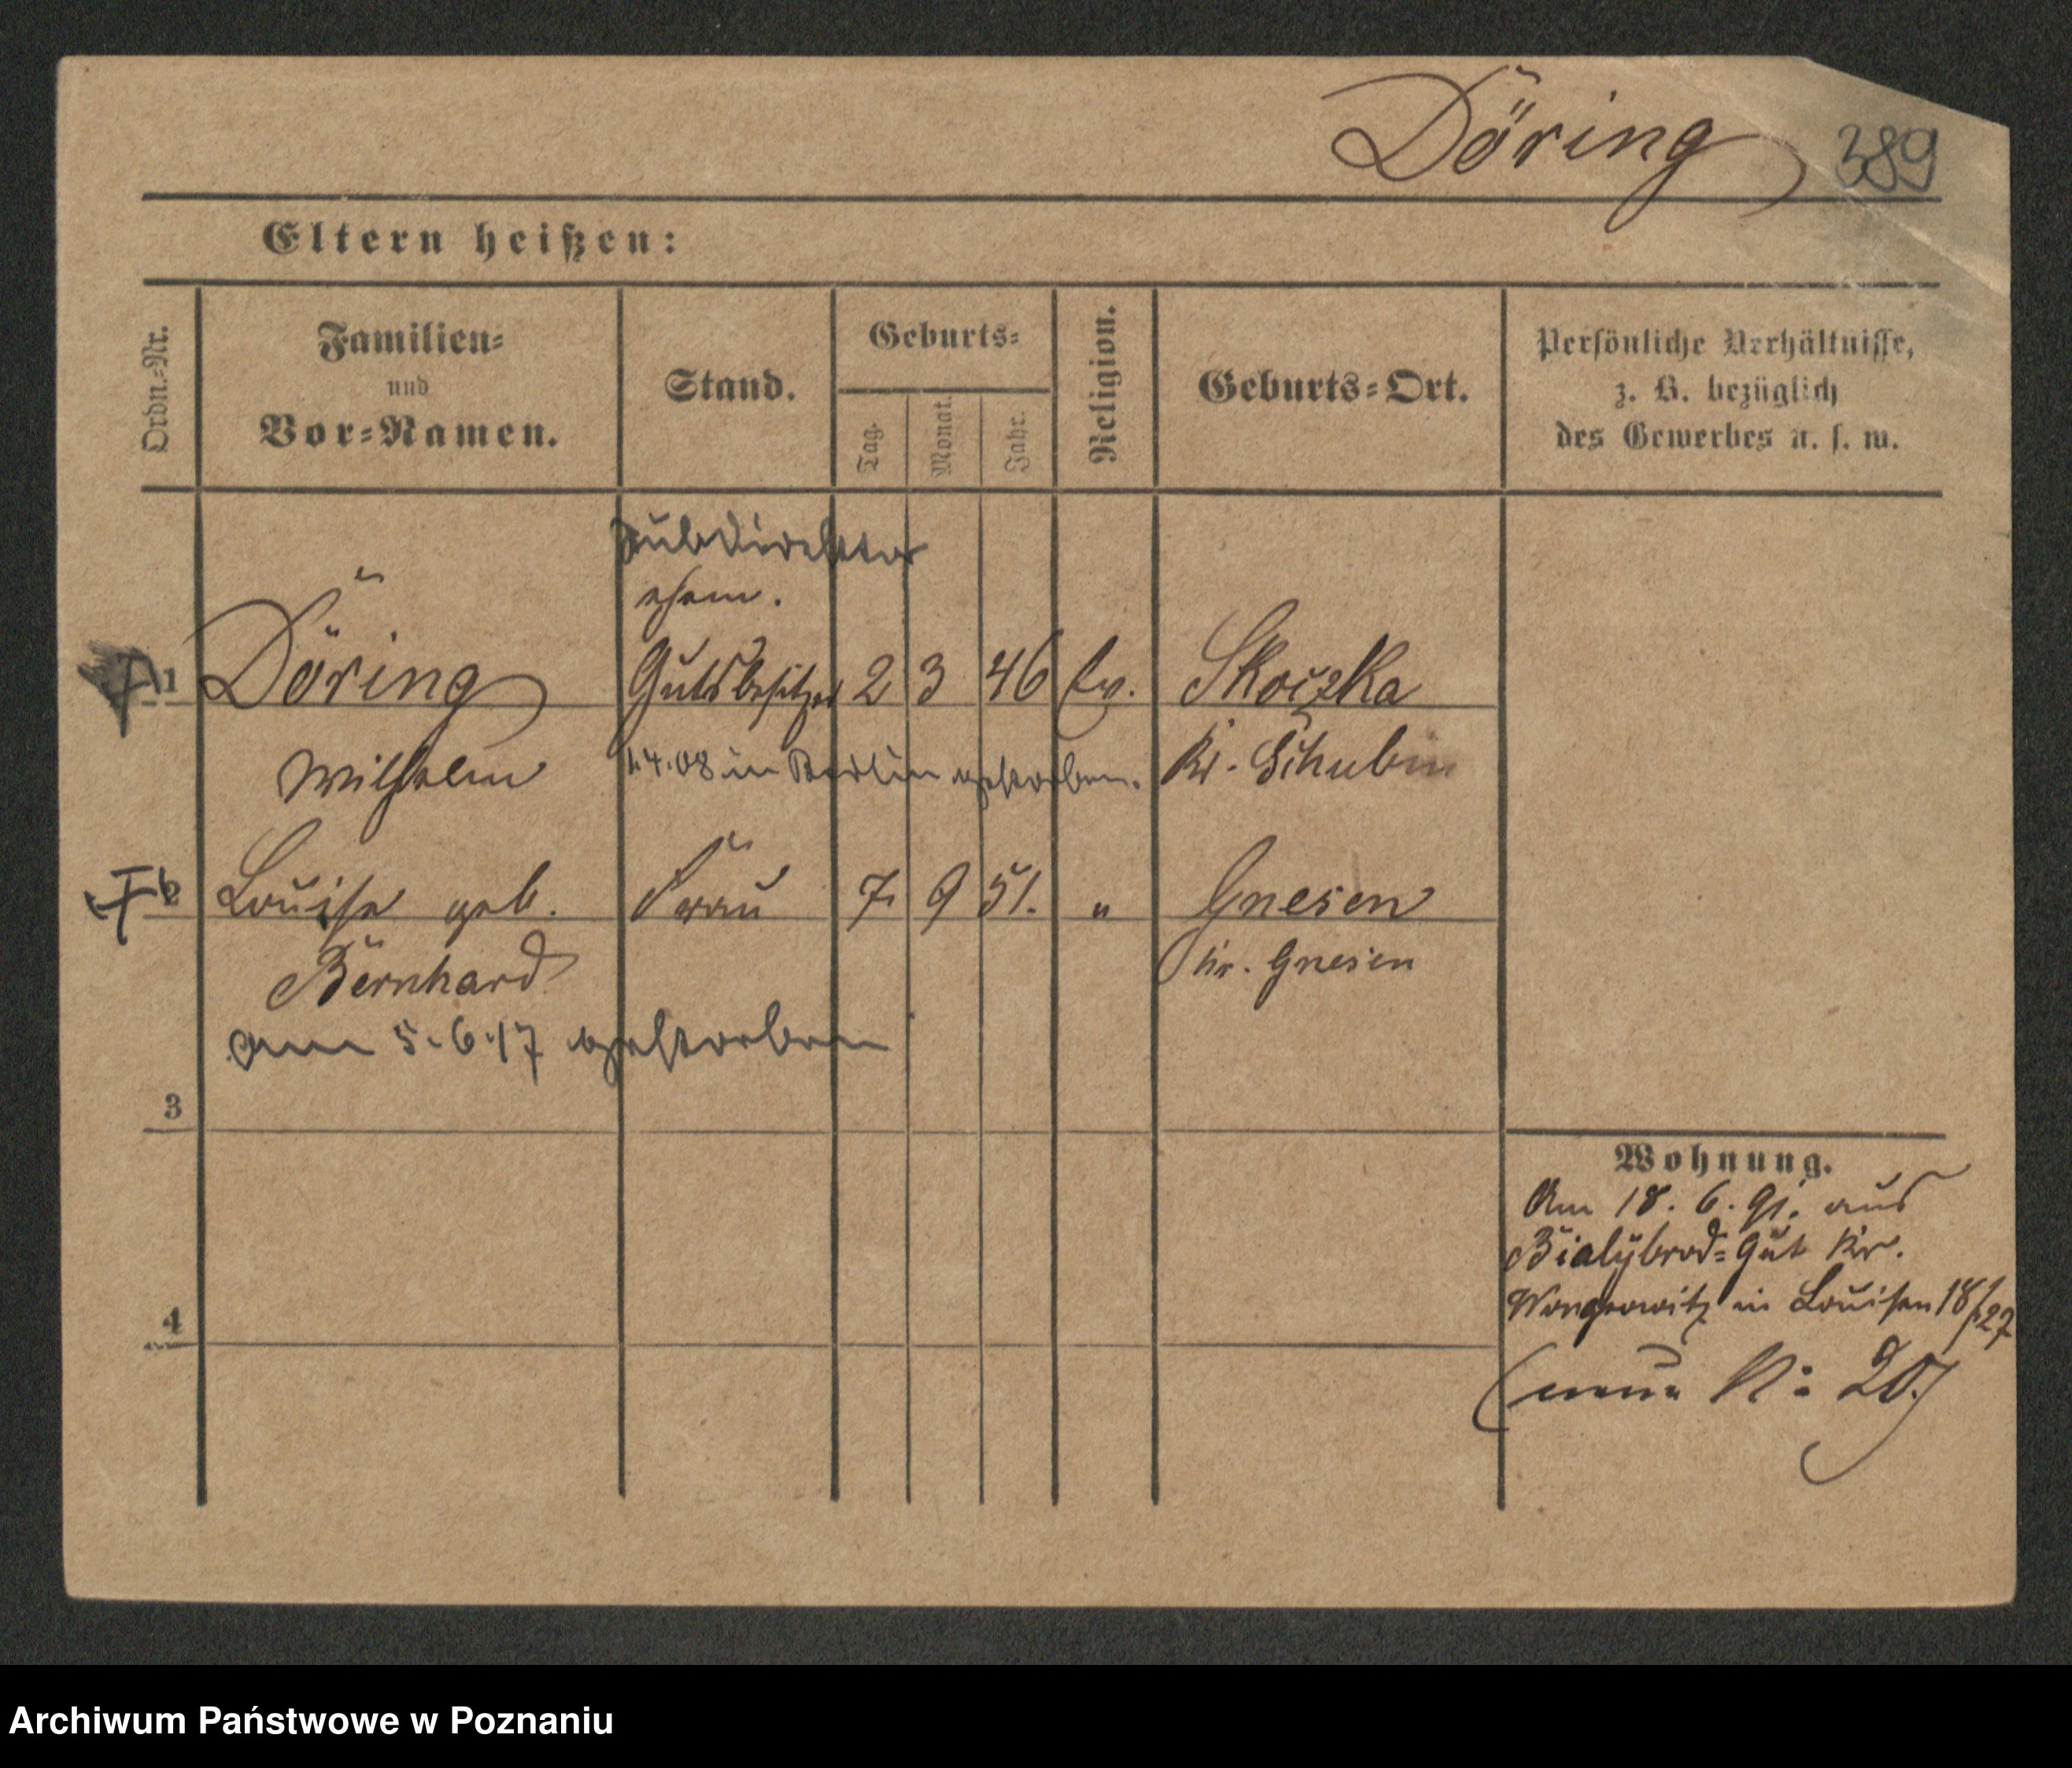 Döring 389
Eltern heißen:
Ordn.-Nr.
Familien-
und
Vor-Namen.
Stand.
Geburts-
Tag.
Monat.
Jahr.
Religion.
Geburts-Ort.
Persönliche Verhältnisse,
z. B. bezüglich
des Gewerbes u. s. w.
Subdirektor
ehem.
1 Döring Gutsbesitzer 2 3 46 Ev. Skoczka
Wilhelm 1.4.08 in Berlin gestorben. Kr. Schubin
2 Louise geb. Frau 7. 9 51. " Gnesen
Bernhard Kr. Gnesen
am 5.6.17 gestorben
3
4
Wohnung.
Am 18. 6. 91. aus
Bialybrod-Gut Kr.
Wongrowitz in Louisen 18/
(neue N: 20)
Archiwum Państwowe w Poznaniu